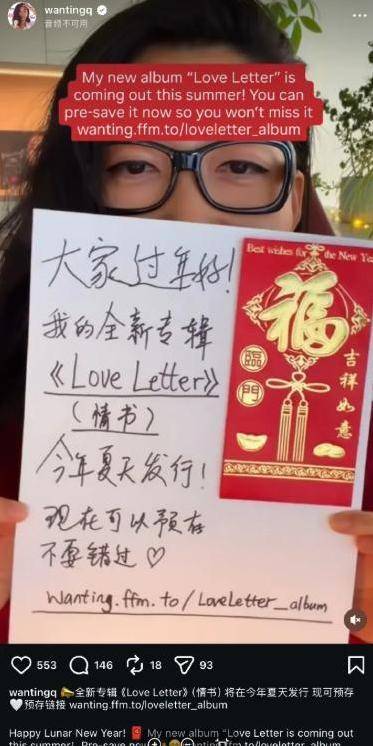 wantingq
音频不可用
My new album “Love Letter” is
coming out this summer! You can
pre-save it now so you won't miss it
wanting.ffm.to/loveletter_album
大家过年好!
我的全新专辑
《Love Letter》
(情书)
今年夏天发行!
现在可以预存
不要错过♡
Wanting.ffm.to/LoveLetter_album
Best wishes for the New Yea
福
臨門
吉祥如意
553 146 18 93
wantingq 📣全新专辑《Love Letter》(情书) 将在今年夏天发行 现可预存
🤍预存链接 wanting.ffm.to/loveletter_album
Happy Lunar New Year! 🧧 My new album “Love Letter is coming out
this summer! Pre-save now